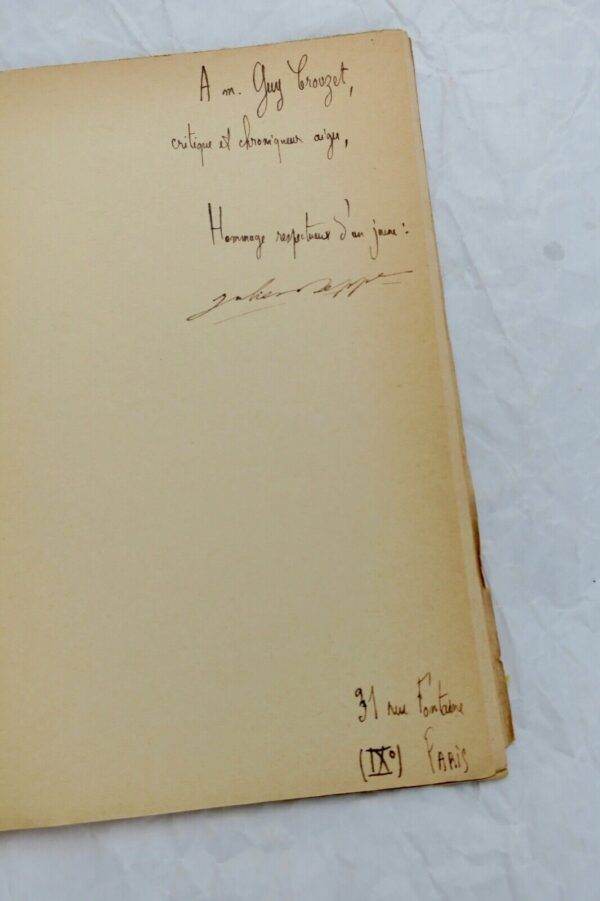 A m. Guy Crouzet,
critique et chroniqueur aigu,
Hommage respectueux d'un jeune :
31 rue Fontaine
(IXº) PARIS